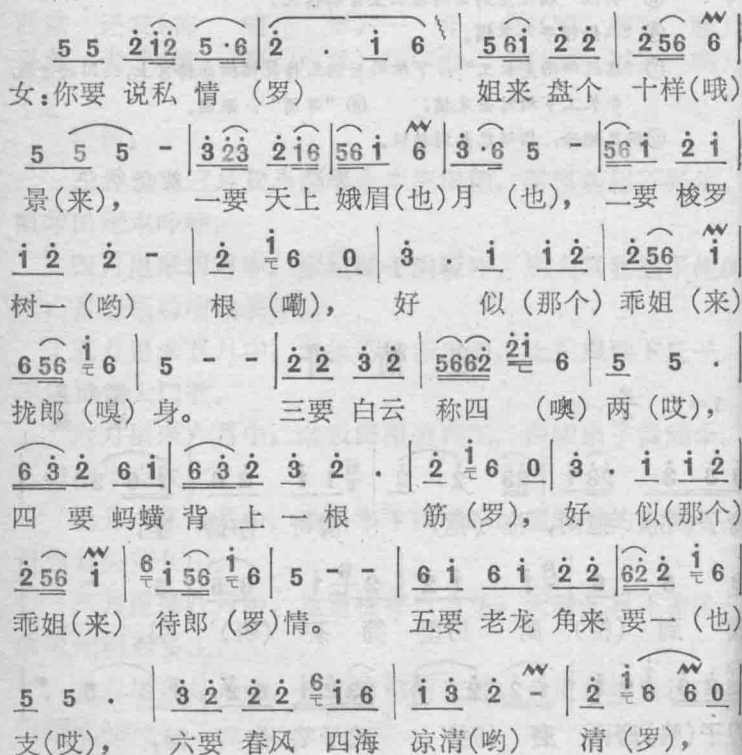 5 5 2̇i̇2̇ 5·6 | 2̇ . i̇ 6 | 56i̇ 2̇ 2̇ 2̇56 6 |
女:你要 说私 情 (罗) 姐来 盘个 十样(哦)
5 5 5 - | 3̇ 2̇3̇ 2̇ i̇6 | 56 i̇ 6 | 3̇.6 5 - | 56 i̇ 2̇ i̇ |
景(来), 一要 天上 娥眉(也)月 (也), 二要 梭罗
i̇ 2̇ 2̇ - | 2̇ i̇ 6 0 | 3̇ i̇ i̇ 2̇ | 2̇56 i̇ |
树一 (哟) 根 (嘞), 好 似 (那个) 乖姐 (来)
6 56 i̇ 6 | 5 - - | 2̇ 2̇ 3̇ 2̇ | 5662̇ 2̇i̇ 6 | 5 5 . |
拢郎 (嗅) 身。 三要 白云 称四 (噢) 两 (哎),
6 3̇ 2̇ 6 i̇ | 6 3̇ 2̇ 3̇ 2̇ . | 2̇ i̇ 6 0 | 3̇. i̇ i̇ 2̇ |
四 要 蚂蟥 背 上 根 筋 (罗), 好 似(那个)
2̇56 i̇ | 6 i̇ 56 i̇ 6 | 5 - - | 6 i̇ 6 i̇ 2̇ 2̇ | 62̇ 2̇ i̇ 6 |
乖姐(来) 待郎 (罗)情。 五要 老龙 角来 要一 (也)
5 5 . | 3̇ 2̇ 2̇ 2̇ 6 i̇ 6 | i̇ 3̇ 2̇ 2̇ | 2̇ i̇ 6 6 0 |
支(哎), 六要 春风 四海 凉清(哟) 清 (罗)